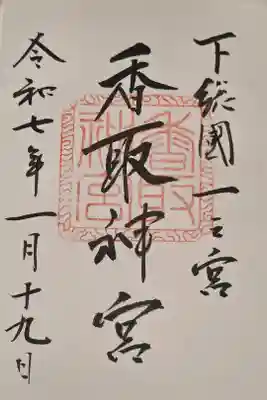 下総國一之宮
香取神宮
令和七年一月十九日
香取神宮